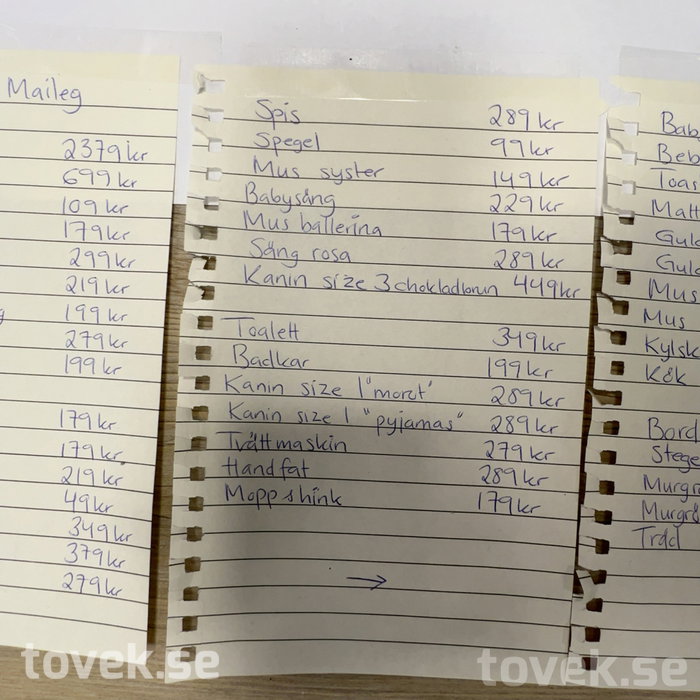 Maileg
2379kr
699kr
109kr
179kr
299kr
219kr
199kr
279kr
199kr
179kr
179kr
219kr
49kr
349kr
379kr
279kr
Spis 289kr
Spegel 99kr
Mus syster 149kr
Babysäng 229kr
Mus ballerina 179kr
Säng rosa 289kr
Kanin size 3 chokladbrun 449kr
Toalett 349kr
Badkar 199kr
Kanin size 1 "morot" 289kr
Kanin size 1 "pyjamas" 289kr
Tvättmaskin 279kr
Handfat 289kr
Mopp & hink 179kr
→
Bab
Beb
Toas
Matt
Gul
Gul
Mus
Mus
Kylsk
Kök
Bord
Stege
Murgr
Murgrö
Träd
tovek.se
tovek.se